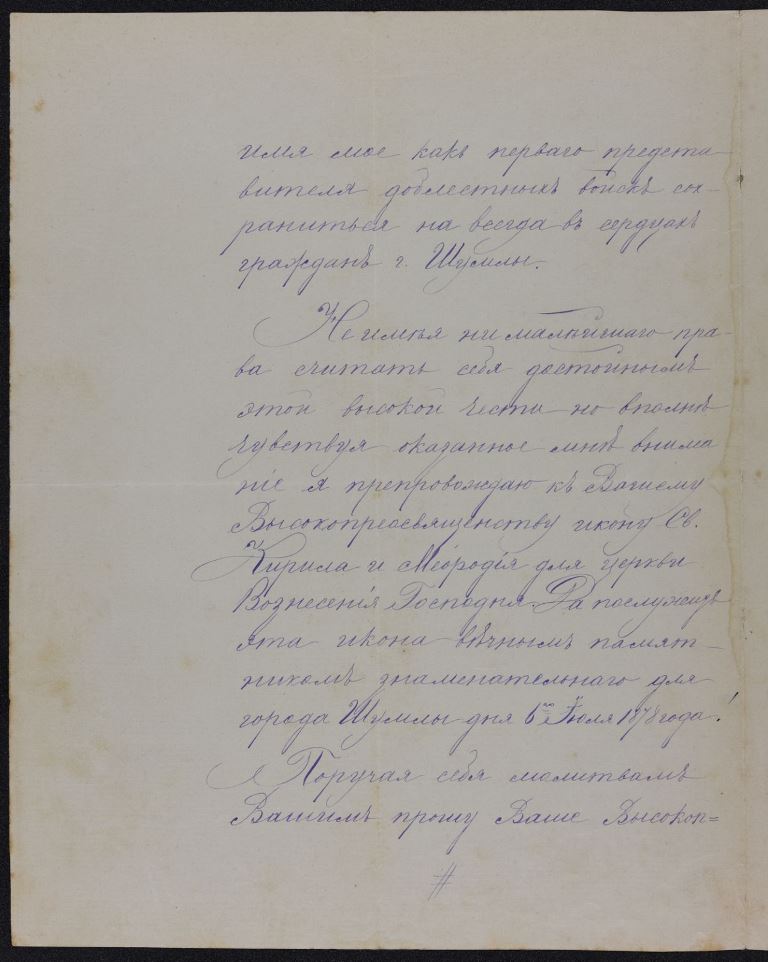 имя мое какъ перваго предста-
вителя доблестныхъ войскъ сох-
раниться на всегда въ сердцахъ
гражданъ г. Шумлы.
Не имѣя ни малѣйшаго пра-
ва считать себя достойнымъ
этой высокой чести но вполнѣ
чувствуя оказанное мнѣ внима
ніе я препровождаю къ Вашему
Высокопреосвященству икону Св.
Кирила и Меѳодія для церкви
Вознесенія Господня. Да послужитъ
эта икона вѣчнымъ памят-
никомъ знаменательнаго для
города Шумлы дня 6го Іюля 1878 года!
Поручая себя молитвамъ
Вашимъ прошу Ваше Высокоп=